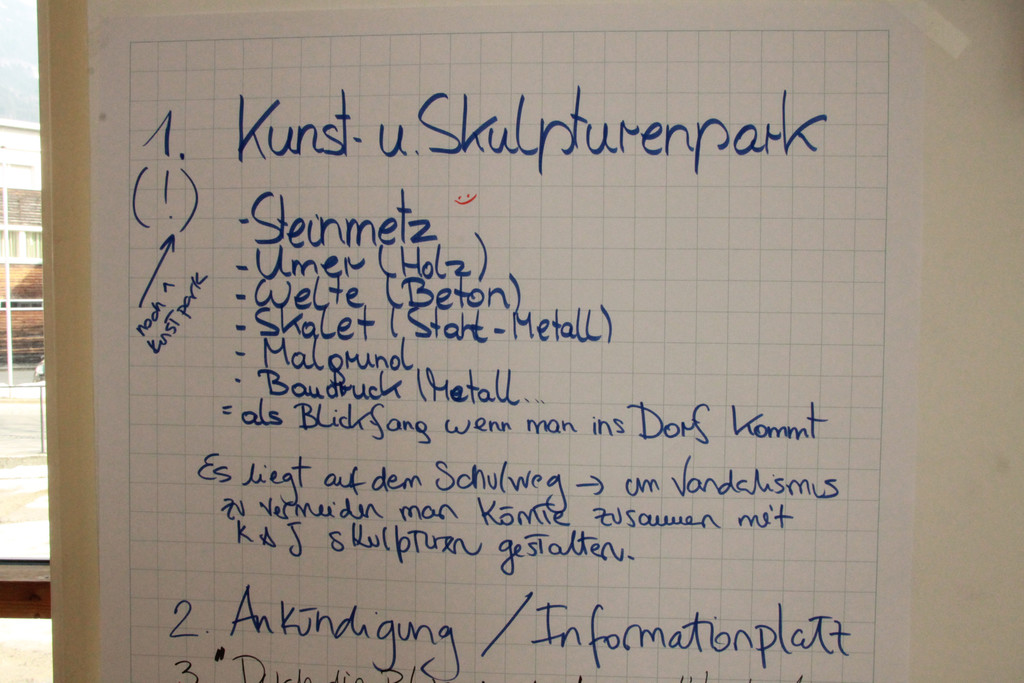 1. Kunst- u. Skulpturenpark
(!)
noch 1 Kunstpark
- Steinmetz
- Umer (Holz)
- Welte (Beton)
- Skalet (Start-Metall)
- Malgrund
- Baudruck (Metall...
= als Blickfang wenn man ins Dorf kommt
Es liegt auf dem Schulweg → um Vandalismus
zu vermeiden man könnte zusammen mit
K & J skulpturen gestalten.
2. Ankündigung / Informationplatz
3. die